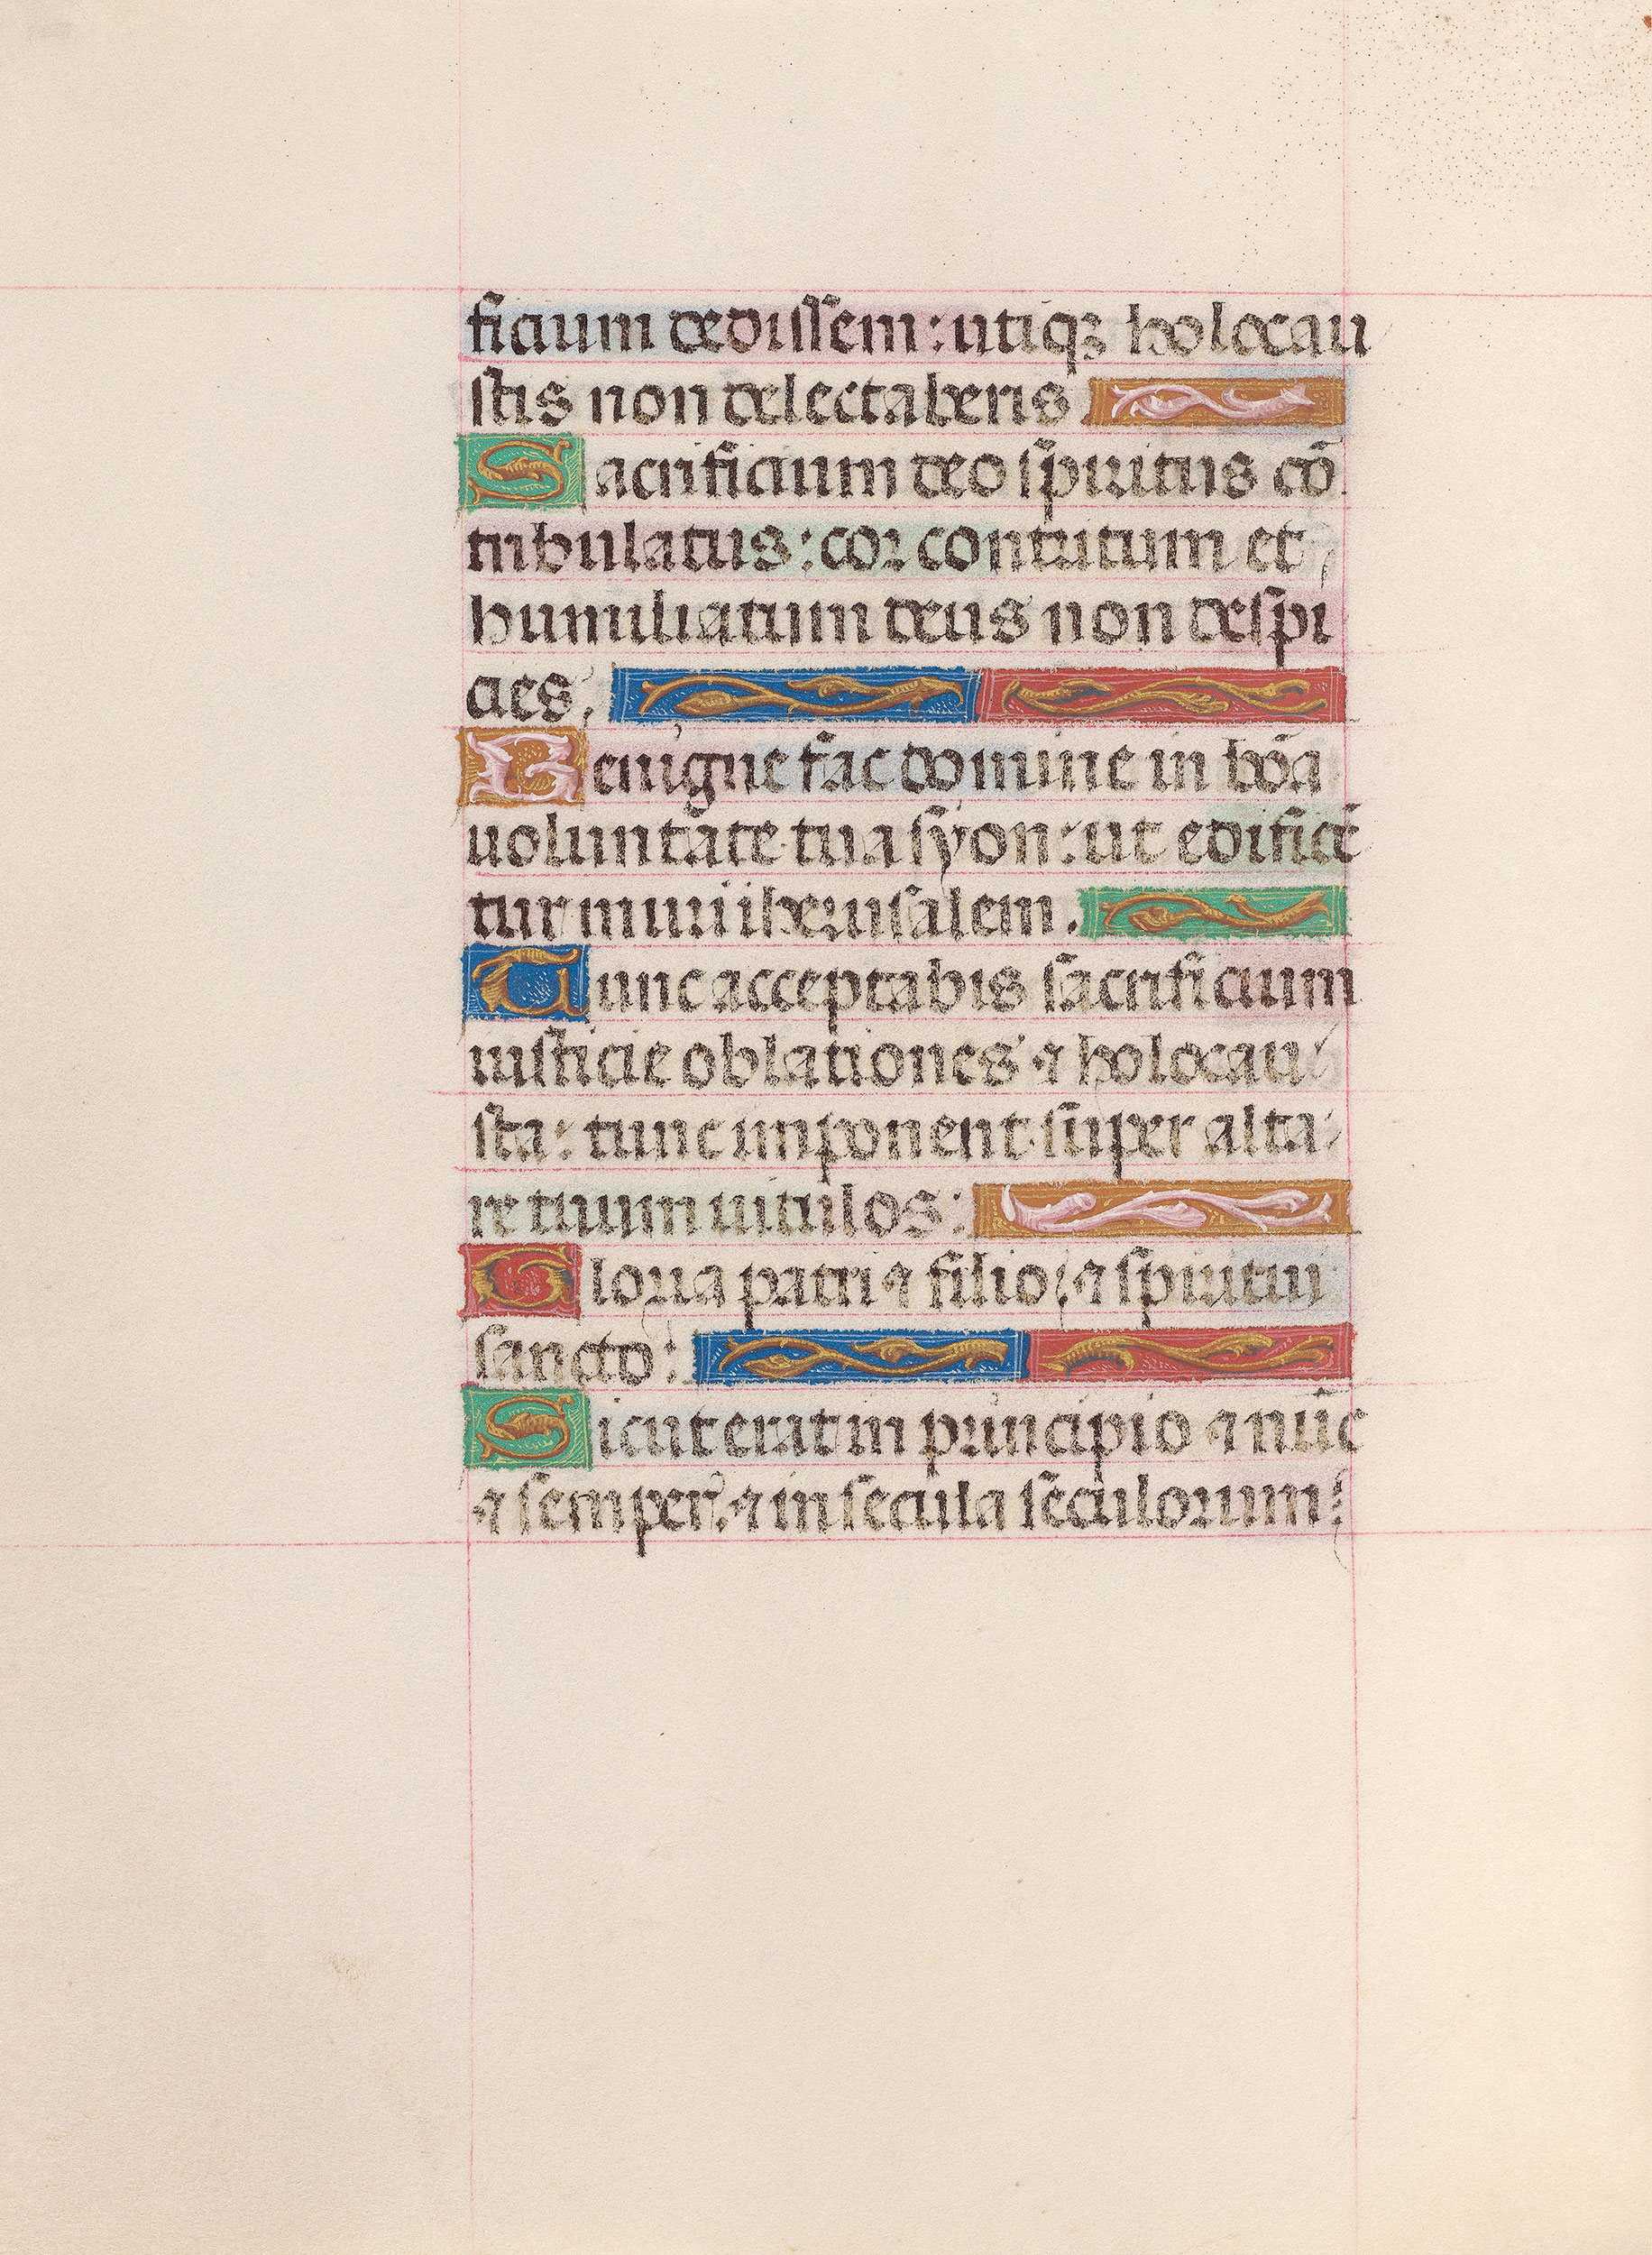 ficium dedissem: utiqꝫ holocau
stis non delectaberis.
Sacrificium deo spiritus cō
tribulatus: cor contritum et
humiliatum deus non despi
cies.
Benigne fac domine in bōa
uoluntate tua syon: ut edificē
tur muri iherusalem.
Tunc acceptabis sacrificium
iusticie oblationes ⁊ holocau
sta: tunc imponent super alta
re tuum uitulos:
Gloria patri ⁊ filio: ⁊ spiritui
sancto:
Sicut erat in principio ⁊ nūc
⁊ semper: ⁊ in secula seculorum: